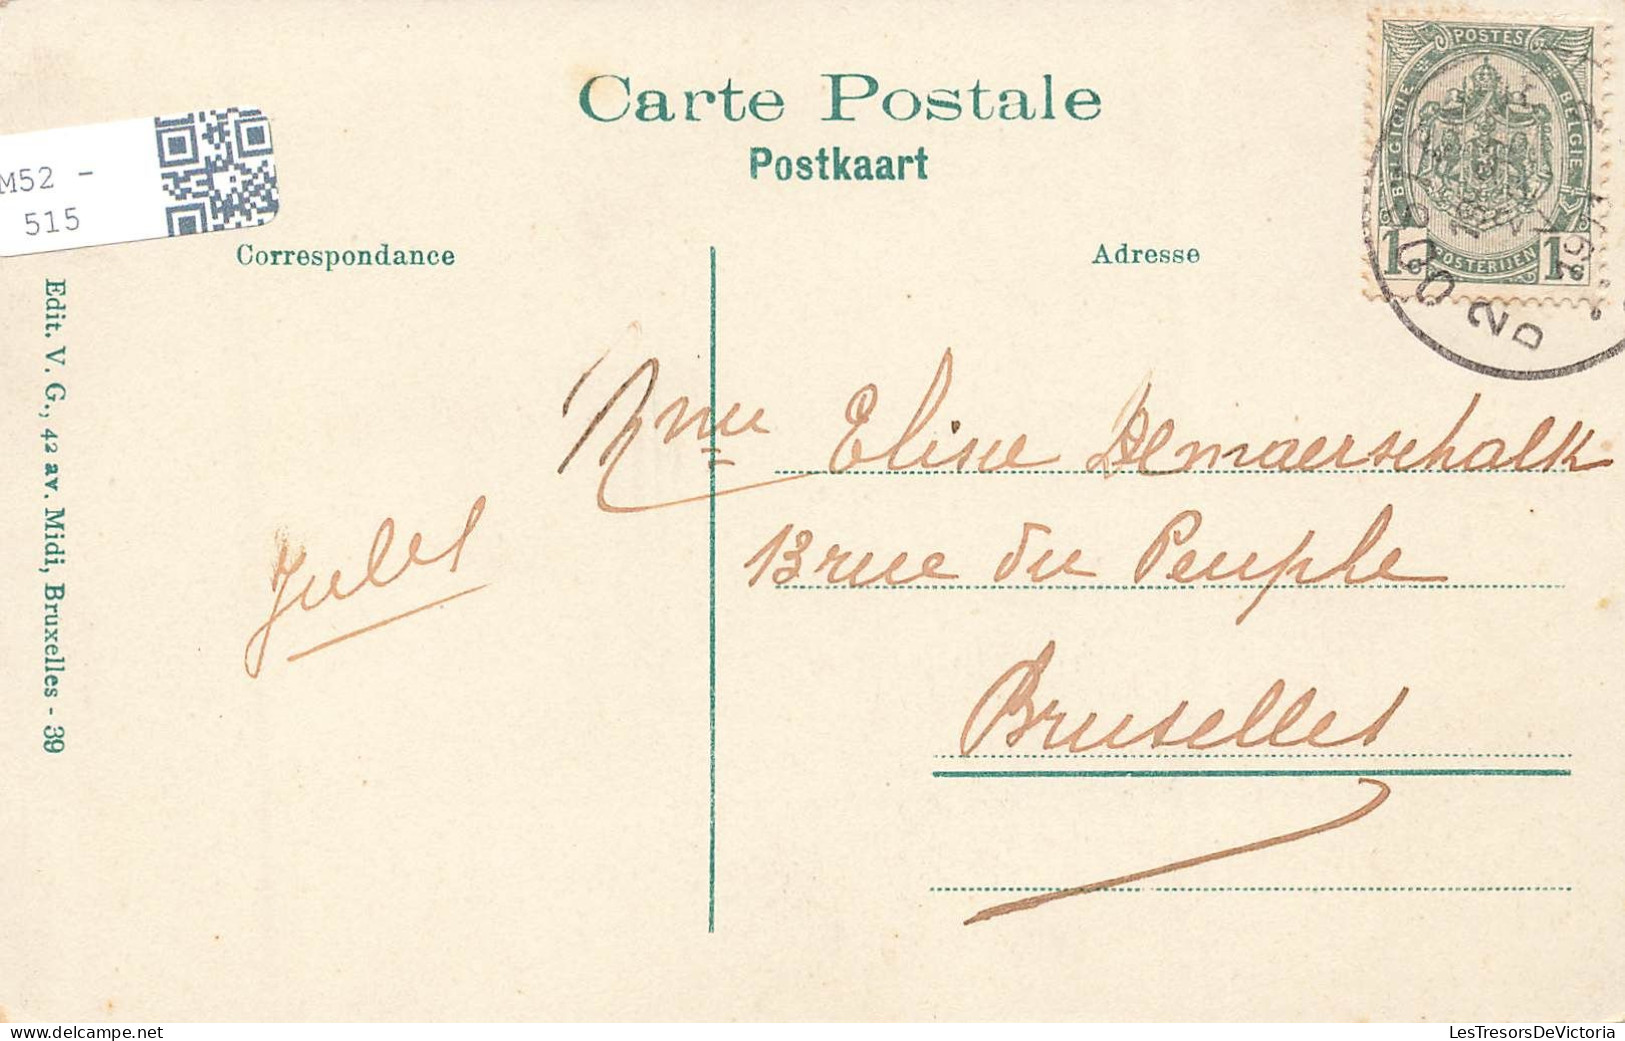 Carte Postale
Postkaart
M52 -
515
Correspondance
Adresse
POSTES
BELGIQUE
BELGIE
POSTERIJEN
1 1
Edit. V. G., 42 av. Midi, Bruxelles - 39
Mme Elise Demaerschalk
13 rue du Peuple
Jules
Bruxelles
LesTresorsDeVictoria